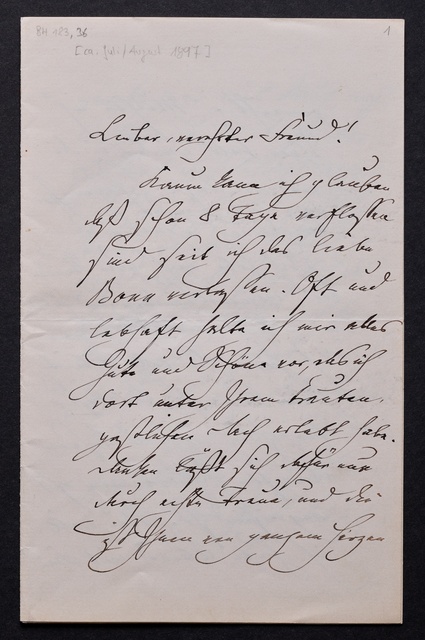 BH 183, 36
1
[ca. Juli/August 1897]
Lieber, verehrter Freund!
Kaum kann ich glauben
daß schon 8 Tage verflossen
sind seit ich das liebe
Bonn verlassen. Oft und
lebhaft halte ich mir alles
Gute und Schöne vor, das ich
dort unter Ihrem trauten,
gastlichen Dach erlebt habe.
Danken läßt sich dafür nur
durch echte Treue, und die
ist Ihnen von ganzem Herzen